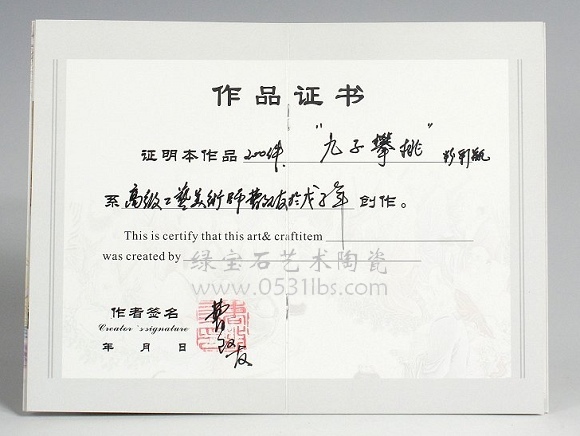 作品证书
证明本作品200件."九子攀桃"粉彩瓶
系高级工艺美術师 于戊子年创作。
This is certify that this art& craftitem
was created by
绿宝石艺术陶瓷
www.0531lbs.com
作者签名
Creator`s signature
年 月 日